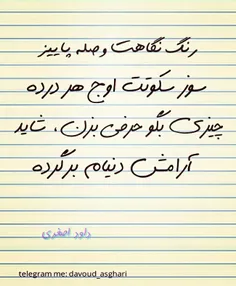 رنگ نگاهت وصله پاییز
سوز سکوتت اوج هر درده
چیزی بگو حرفی بزن، شاید
آرامش دنیام برگرده
داود اصغری
telegram me: davoud_asghari